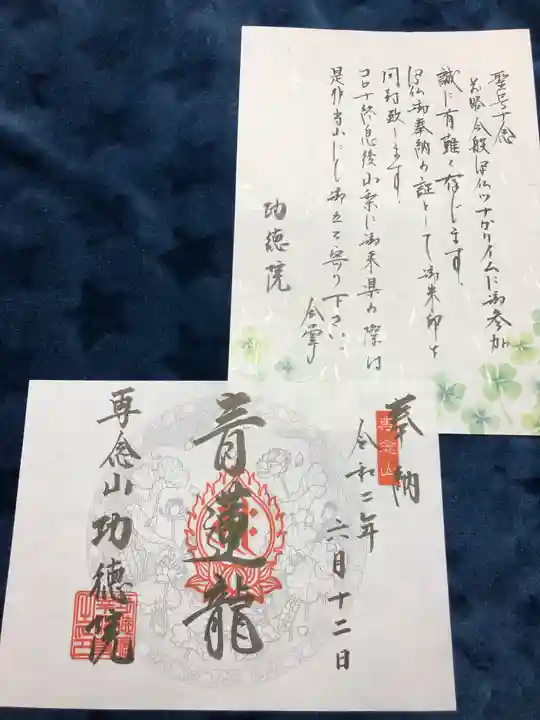 聖号十念
前略 今般写仏ツナガリイムに御参加
誠に有難く存じます。
写仏御奉納の証として御朱印を
同封致します。
コロナ終息後山梨に御来県の際は
是非当山にも御立ち寄り下さい。
合掌
功徳院
奉納
専念山
令和二年
六月十二日
青蓮龍
専念山功徳院